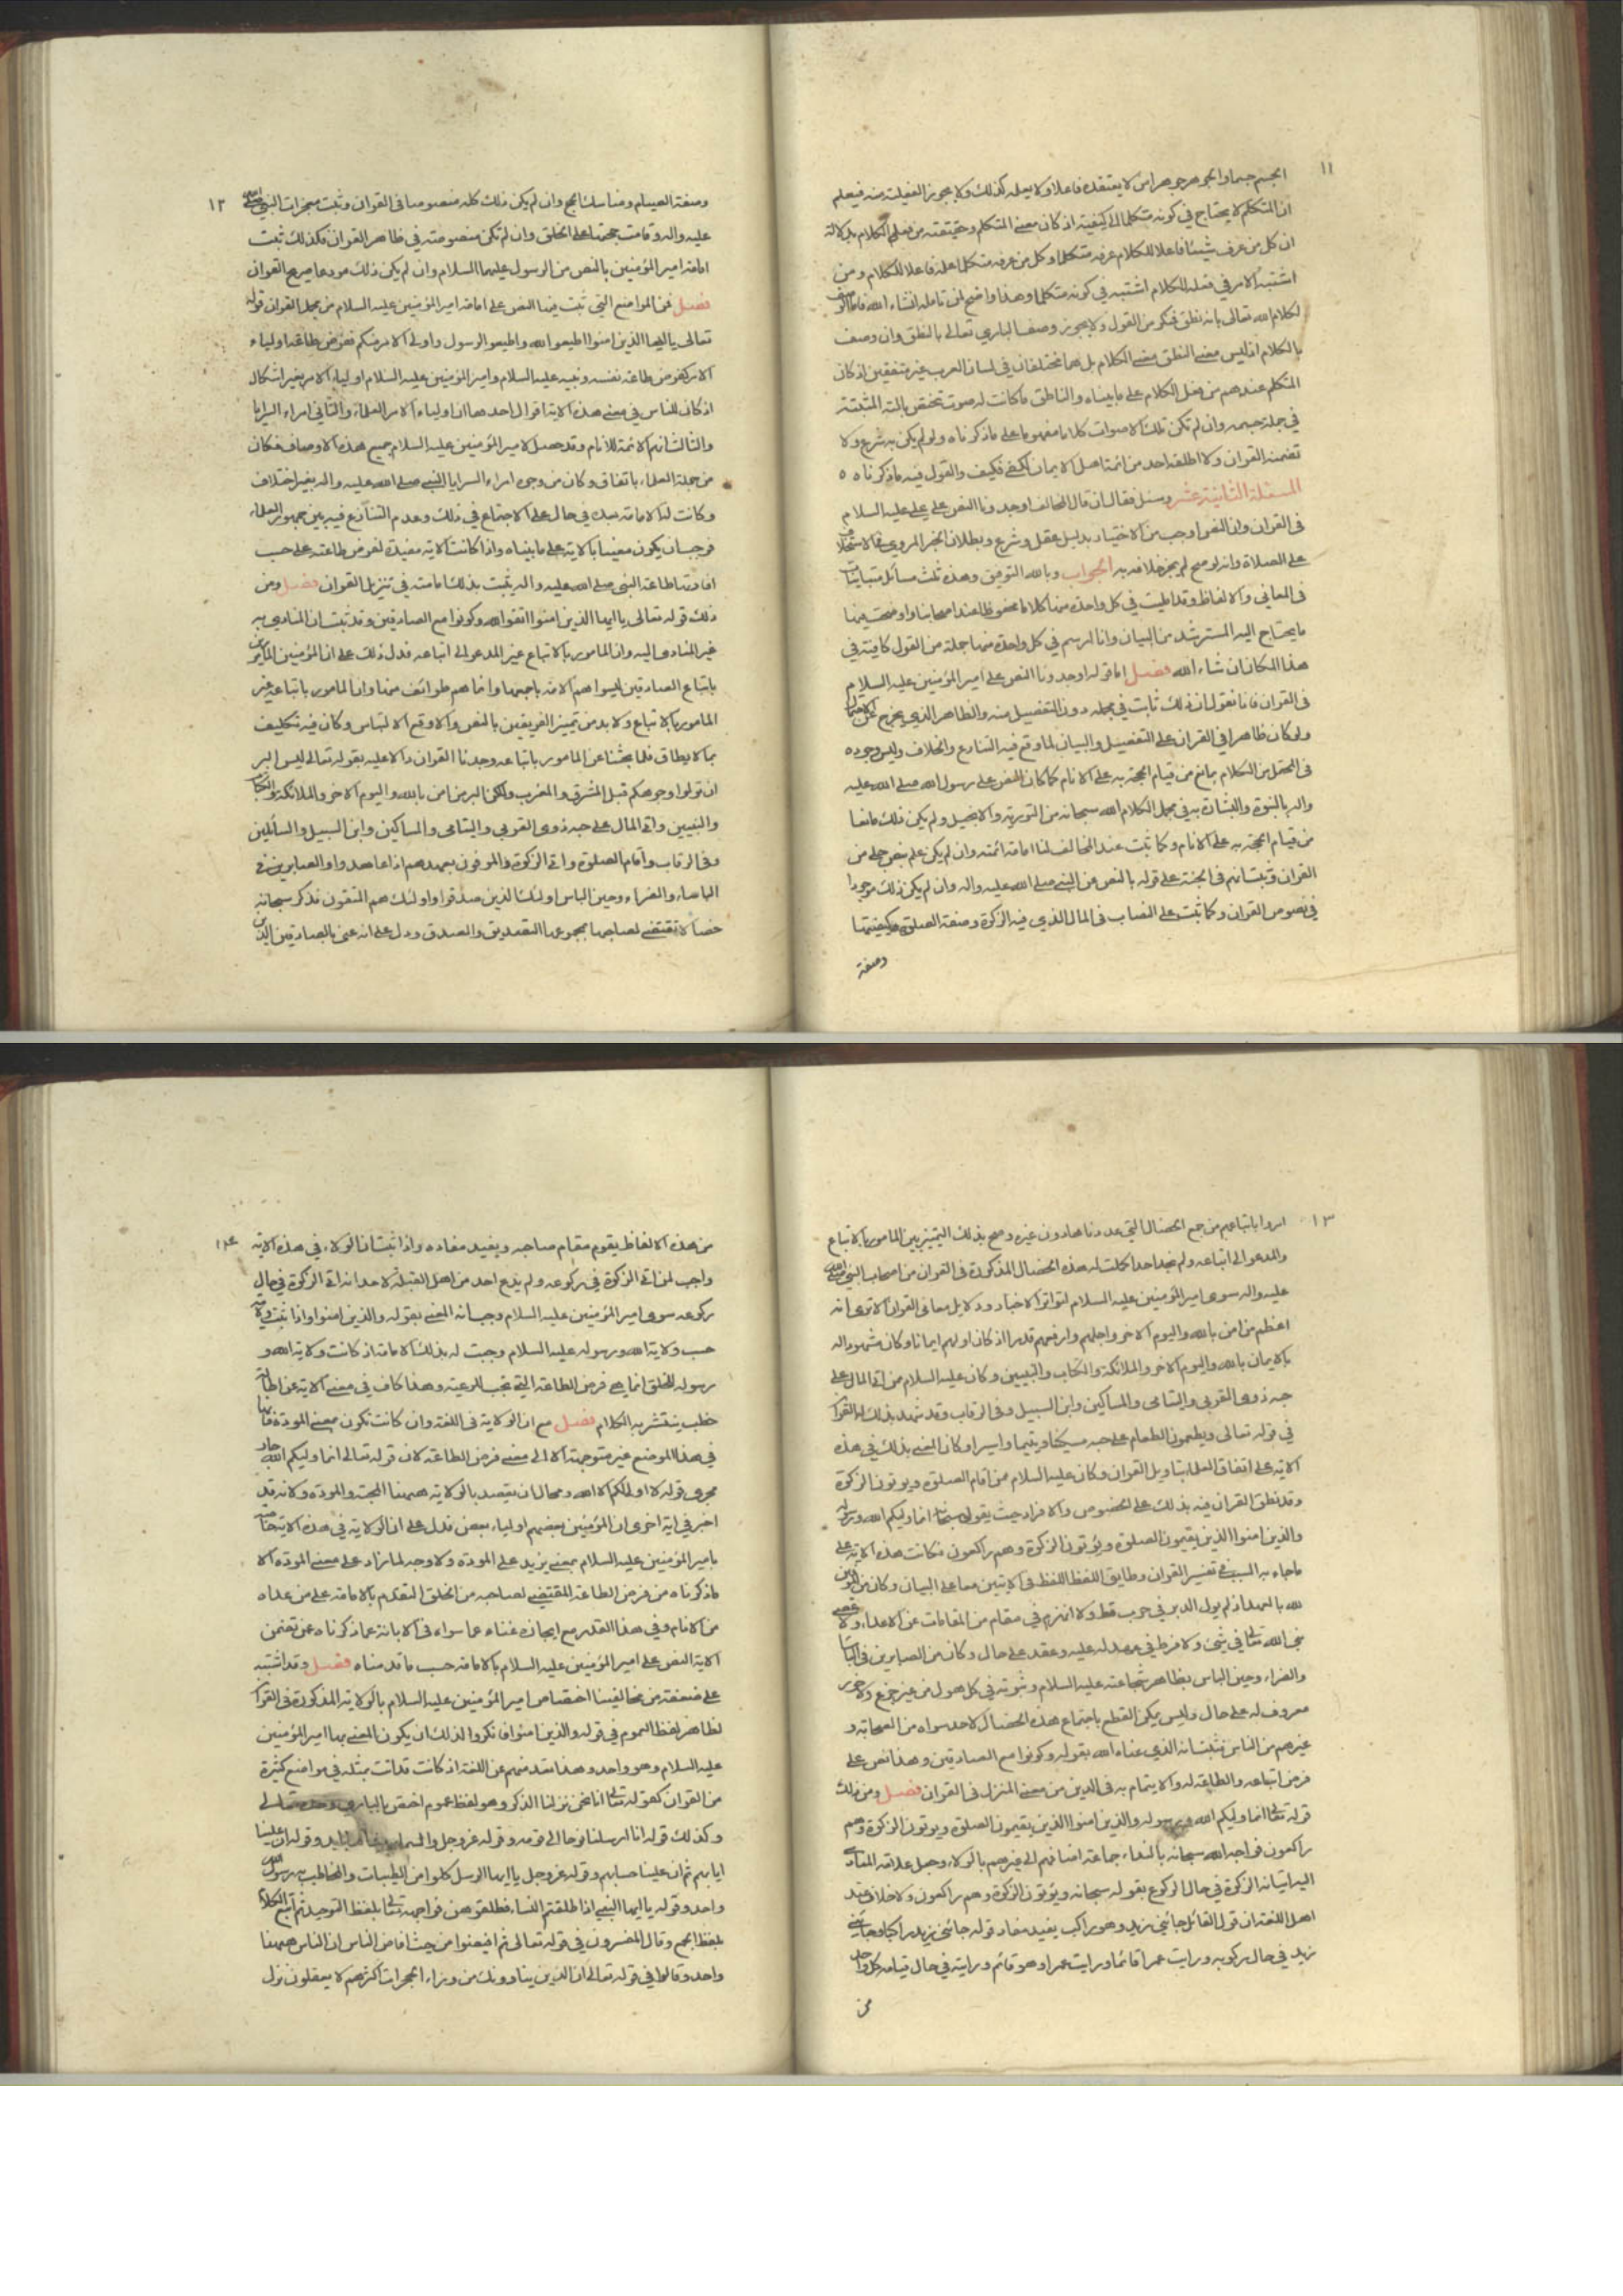 ١١
الجسم جسما والجوهر جوهرا من لا يعتقده فاعلا ولا يعلمه كذلك ولا يجوز العقيلة منه فيعلم
ان المتكلم لا يحتاج في كونه متكلما الى كيفية اذ كان معنى المتكلم وحقيقته من فعل الكلام بدلالة
ان كل من عرف شيئا فاعلا للكلام عرفه متكلما وكل من عرفه متكلما علمه فاعلا للكلام ومن
اشتبه الامر في فعله للكلام اشتبه في كونه متكلما وهذا واضح لمن تامله انشاء الله فاما الوصف
لكلام الله تعالى بانه نطق فمنكر من القول ولا يجوز وصف الباري تعالى بالنطق وان وصف
بالكلام اذ ليس معنى النطق معنى الكلام بل هما مختلفان في لسان العرب غير متفقين اذ كان
المتكلم عندهم من فعل الكلام على ما بيناه والناطق ما كانت له صوت تختص بالته المثبتة
في جملة جسمه وان لم تكن تلك الاصوات كلاما مفهوما على ما ذكرناه ولو لم يكن به شرع ولا
تضمنه القران ولا اطلقه احد من ائمة اهل الايمان لكفى فكيف والقول فيه ما ذكرناه ٥
المسئلة الثانية عشر وسئل فقال ان قال المخالف اوجدونا النص على علي عليه السلام
في القران وان النص اوجب من الاختيار بدليل عقل وشرع وبطلان الخبر المروي في الاستخلاف
على الصلاة وانه لو صح لم يجز خلافه به الجواب وبالله التوفيق وهذه ثلث مسائل متباينات
في المعاني والالفاظ وقد امليت في كل واحدة منها كلاما محفوظا عند اصحابنا واوضحت فيها
ما يحتاج اليه المسترشد من البيان وانا ارسم في كل واحدة منها جملة من القول كافية في
هذا المكان ان شاء الله فصل اما قوله اوجدونا النص على امير المؤمنين عليه السلام
في القران فانا نقول ان ذلك ثابت في مجمله دون التفصيل منه والظاهر الذي يخرج
ولو كان ظاهرا في القران على التفصيل والبيان لما وقع فيه التنازع والخلاف وليس وجوده
في المحتمل من الكلام بمانع من قيام الحجة به على الانام كما كان النص على رسول الله صلى الله عليه
واله بالنبوة والبشارة به في مجمل الكلام الله سبحانه من التورية والانجيل ولم يكن ذلك مانعا
من قيام الحجة به على الانام وكما ثبت عند المخالف لنا امامة ائمته وان لم يكن علم بنص جلي من
القران وثبت انهم في الجنة على قوله بالنص من النبي صلى الله عليه واله وان لم يكن ذلك موجودا
في نصوص القران وكما ثبت على النصاب في المال الذي فيه الزكوة وصفة الصلوة وكيفيتها
وصفة
١٢
وصفة الصيام ومناسك الحج وان لم يكن ذلك كله منصوصا في القران وثبت معجزات النبي صلى الله
عليه واله وقامت حجتها على الخلق وان لم تكن منصوصة في ظاهر القران فكذلك ثبت
امامة امير المؤمنين بالنص من الرسول عليهما السلام وان لم يكن ذلك مودعا صريح القران
فصل فمن المواضع التي ثبت فيها النص على امامة امير المؤمنين عليه السلام من مجمل القران قوله
تعالى يا ايها الذين امنوا اطيعوا الله واطيعوا الرسول واولى الامر منكم ففرض طاعة اولياء
الامر كفرض طاعة نفسه ونبيه عليه السلام وامير المؤمنين عليه السلام اولياء الامر بغير اشكال
اذ كان للناس في معنى هذه الاية اقوال احدها ان اولياء الامر العلماء والثاني امراء السرايا
والثالث انهم الائمة للانام وقد حصل لامير المؤمنين عليه السلام جميع هذه الاوصاف فكان
من جملة العلماء باتفاق وكان من وجوه امراء السرايا النبي صلى الله عليه واله بغير اختلاف
وكانت له الامامة بعده في حال على الاجتماع في ذلك وعدم التنازع فيه بين جمهور العلماء
فوجب ان يكون معينا بالاية على ما بيناه واذا كانت الاية مفيدة لفرض طاعته على حسب
افادتها طاعة النبي صلى الله عليه واله يثبت بذلك امامته في تنزيل القران فصل ومن
ذلك قوله تعالى يا ايها الذين امنوا اتقوا الله وكونوا مع الصادقين وقد ثبت ان المنادى به
غير المنادى اليه وان المامور بالاتباع غير المدعو الى اتباعه فدل ذلك على ان المؤمنين المامورين
باتباع الصادقين ليسوا هم الامة باجمعها وانما هم طوائف منها وان المامور باتباعه غير
المامور بالاتباع ولا بد من تميز الفريقين بالنص والا وقع الالتباس وكان فيه تكليف
بما لا يطاق فلما بحثنا عن المامور باتباعه وجدنا القران دالا عليه بقوله تعالى ليس البر
ان تولوا وجوهكم قبل المشرق والمغرب ولكن البر من امن بالله واليوم الاخر والملائكة والكتاب
والنبيين واتى المال على حبه ذوى القربي واليتامى والمساكين وابن السبيل والسائلين
وفي الرقاب واقام الصلوة واتى الزكوة والموفون بعهدهم اذا عاهدوا والصابرين في
الباساء والضراء وحين الباس اولئك الذين صدقوا واولئك هم المتقون فذكر سبحانه
خصالا تقتضي لصاحبها بمجموعها التصديق والصدق ودل على انه عنى بالصادقين الذين
١٣
امروا باتباعهم من جمع الخصال التي عددناها دون غيره وصح بذلك التمييز بين المامور بالاتباع
والمدعو الى اتباعه ولم نجد احدا كملت له هذه الخصال المذكورة في القران من اصحاب النبي صلى الله
عليه واله سوى امير المؤمنين عليه السلام لتواتر الاخبار ودلايل معاني القران الا ترى انه
اعظم من امن بالله واليوم الاخر واجلهم وارفعهم قدرا اذ كان اولهم ايمانا وكان مشهودا له
بالايمان بالله واليوم الاخر والملائكة والكتاب والنبيين وكان عليه السلام ممن اتى المال على
حبه ذوى القربي واليتامى والمساكين وابن السبيل وفي الرقاب وقد شهد بذلك له القران
في قوله تعالى ويطعمون الطعام على حبه مسكينا ويتيما واسيرا وكان المعنى بذلك في هذه
الاية على اتفاق العلما بتاويل القران وكان عليه السلام ممن اقام الصلوة ويوتون الزكوة
وقد نطق القران فيه بذلك على الخصوص والافراد حيث يقول سبحانه انما وليكم الله ورسوله
والذين امنوا الذين يقيمون الصلوة ويؤتون الزكوة وهم راكعون فكانت هذه الاية على
ما جاء به السبب في تفسير القران وطابق اللفظ اللفظ في الايتين معا على البيان وكان من الموفين
لله بالعهد اذ لم يول الدبر في حرب قط ولا انهزم في مقام من المقامات عن الاعداء ولا عصى
نبي الله تعالى في شئ ولا فرط في عهد له عليه وعقد على حال وكان من الصابرين في الباساء
والضراء وحين الباس بظاهر شجاعته عليه السلام وثبوته في كل هول من غير جزع ولا خور
معروف له على حال وليس يمكن القطع باجتماع هذه الخصال لاحد سواه من الصحابة و
غيرهم من الناس فثبت انه الذي عناه الله بقوله وكونوا مع الصادقين وهذا نص على
فرض اتباعه والطاعة له والايتمام به في الدين من معنى المنزل في القران فصل ومن ذلك
قوله تعالى انما وليكم الله ورسوله والذين امنوا الذين يقيمون الصلوة ويوتون الزكوة وهم
راكعون فواجه الله سبحانه بالنداء جماعة اضافهم الى غيرهم بالولاء وجعل علامة المنادى
اليه ايتائه الزكوة في حال الركوع بقوله سبحانه ويؤتون الزكوة وهم راكعون ولا خلاف عند
اهل اللغة ان قول القائل جائني زيد وهو راكب يفيد مفاد قوله جائني زيد راكبا وجائني
زيد في حال ركوبه ورايت عمرا قائما ورايت عمرا وهو قائم ورايته في حال قيامه كل واحد
من
١٤
من هذه الالفاظ يقوم مقام صاحبه ويفيد مفاده واذا ثبت ان الولاء في هذه الاية
واجب لمن اتى الزكوة في ركوعه ولم يدع احد من اهل القبلة لاحد انه اتى الزكوة في حال
ركوعه سوى امير المؤمنين عليه السلام وجب انه المعنى بقوله والذين امنوا واذا ثبت ولايته
حسب ولاية الله ورسوله عليه السلام وجبت له بذلك الامامة اذ كانت ولاية الله و
رسوله للخلق انما هي فرض الطاعة التي تجب للرعية وهذا كاف في معنى الاية عن اطالة
خطب ينتشر به الكلام فصل مع ان الولاية في اللغة وان كانت تكون بمعنى المودة فانها
في هذا الموضع غير متوجهة الا الى معنى فرض الطاعة لان قوله تعالى انما وليكم الله جار
مجرى قوله لا ولي لكم الا الله ومحال ان يقصد بالولاية ههنا المحبة والمودة ولانه قد
اخبر في اية اخرى ان المؤمنين بعضهم اولياء بعض فدل على ان الولاية في هذه الاية خاصة
بامير المؤمنين عليه السلام بمعنى يزيد على المودة ولا وجه لما زاد على معنى المودة الا
ما ذكرناه من فرض الطاعة المقتضي لصاحبه من الخلق التقدم بالامامة على من عداه
من الانام وفي هذا القدر مع ايجازه غناء عما سواه في الابانة عما ذكرناه عن تضمن
الاية النص على امير المؤمنين عليه السلام بالامامة حسب ما قدمناه فصل وقد اشتبه
على ضعفة من مخالفينا اختصاص امير المؤمنين عليه السلام بالولاية المذكورة في القران
لظاهر لفظ العموم في قوله والذين امنوا فانكروا لذلك ان يكون المعنى بها امير المؤمنين
عليه السلام وهو واحد وهذا بعد منهم عن اللغة اذ كانت قد اتت بمثله في مواضع كثيرة
من القران كقوله تعالى انا نحن نزلنا الذكر وهو لفظ عموم اختص بالباري وحده تعالى
وكذلك قوله انا ارسلنا نوحا الى قومه وقوله عز وجل والسماء بنيناها بايد وقوله ان علينا
ايابهم ثم ان علينا حسابهم وقوله عز وجل يا ايها الرسل كلوا من الطيبات والمخاطب به رسول الله
واحد وقوله يا ايها النبي اذا طلقتم النساء فطلقوهن فواجهه تعالى بلفظ التوحيد ثم اتبع الكلام
بلفظ الجمع وقال المفسرون في قوله تعالى ثم افيضوا من حيث افاض الناس ان الناس ههنا
واحد وقالوا في قوله تعالى ان الذين ينادونك من وراء الحجرات اكثرهم لا يعقلون نزل